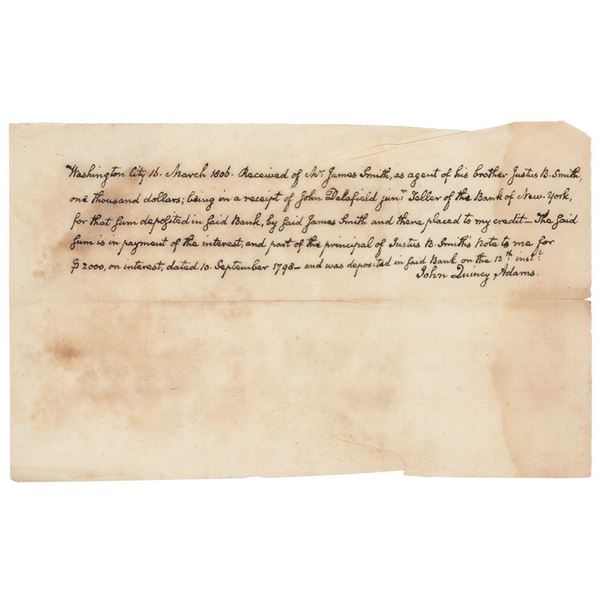 Washington City 16. March 1806. Received of Mr. James Smith, as agent of his brother Justus B. Smith,
one thousand dollars; being in a receipt of John Delafield junr. Teller of the Bank of New-York,
for that sum deposited in said Bank, by said James Smith and there placed to my credit— The said
sum is in payment of the interest, and part of the principal of Justus B. Smith's note to me for
$2000, on interest, dated 10. September 1798— and was deposited in said Bank on the 12th instt.
John Quincy Adams.